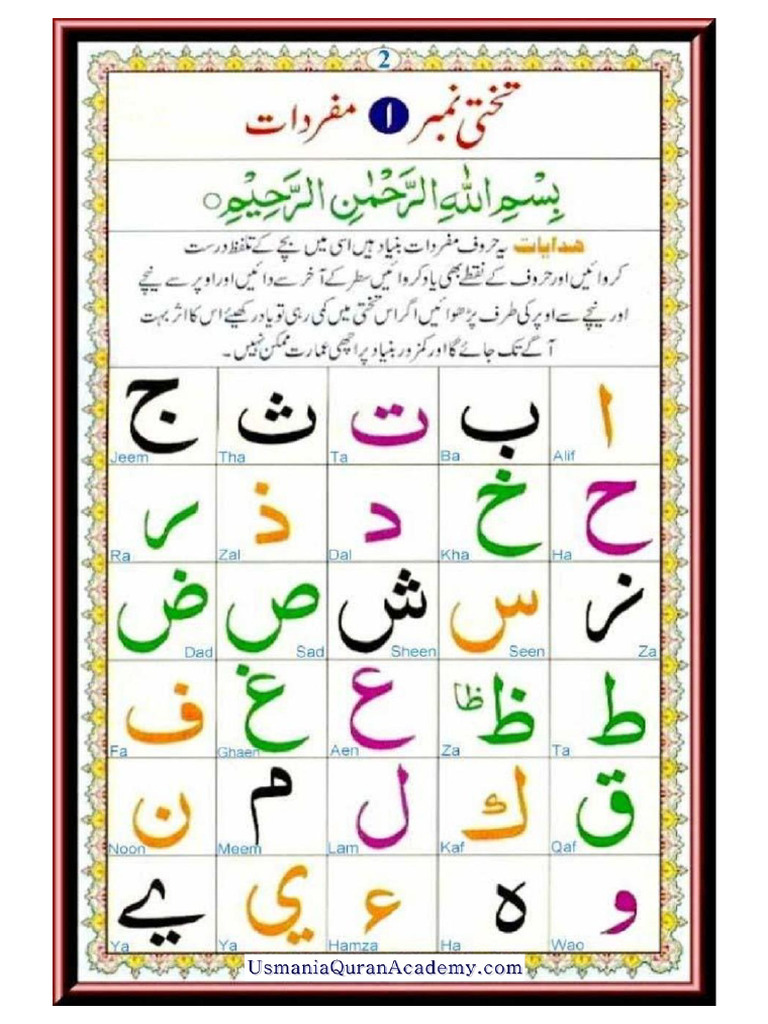 2
تختی نمبر ۱ مفردات
بِسْمِ اللهِ الرَّحْمٰنِ الرَّحِيْمِ
هدایات یہ حروف مفردات بنیاد ہیں اسی میں بچے کے تلفظ درست
کروائیں اور حروف کے نقطے بھی یاد کروائیں سطر کے آخر سے دائیں اور اوپر سے نیچے
اور نیچے سے اوپر کی طرف پڑھوائیں اگر اس تختی میں کمی رہی تو یاد رکھیئے اس کا اثر بہت
آگے تک جائے گا اور کمزور بنیاد پر اچھی عمارت ممکن نہیں۔
ا ب ت ث ج
Alif Ba Ta Tha Jeem
ح خ د ذ ر
Ha Kha Dal Zal Ra
ز س ش ص ض
Za Seen Sheen Sad Dad
ط ظ ظا ع غ ف
Ta Za Aen Ghaen Fa
ق ك ل م ن
Qaf Kaf Lam Meem Noon
و ه ء ي ے
Wao Ha Hamza Ya Ya
UsmaniaQuranAcademy.com